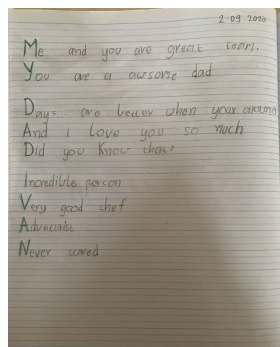 2-09-2020
Me and you are great team.
You are a awsome dad
Days are better when your around
And i Love you so much
Did you Know that?
Incredible person
Very good chef
Never